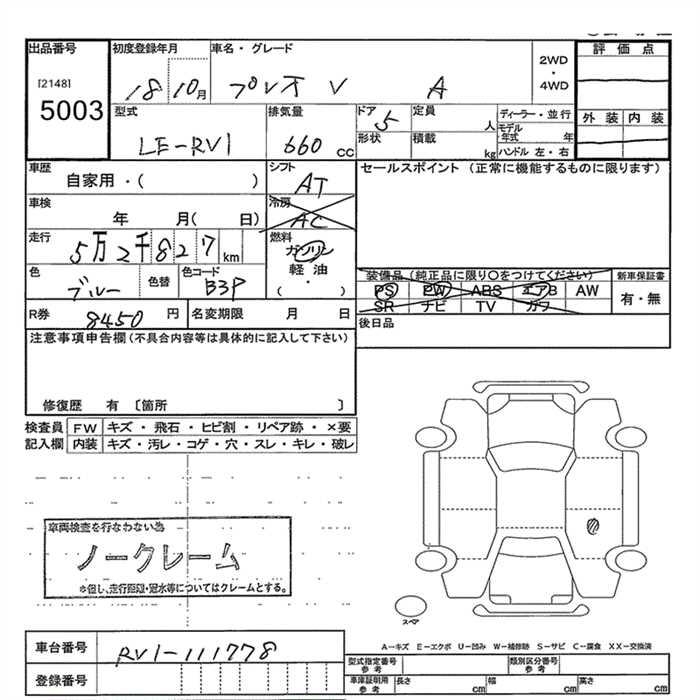 出品番号
[2148]
5003
初度登録年月
18 10月
車名・グレード
プレオ V A
2WD
・
4WD
評価点
外装 内装
型式
LE-RV1
排気量
660 cc
ドア
5
定員
人
形状
積載
kg
ディーラー・並行
モデル
年式
年
ハンドル 左・右
車歴
自家用・( )
シフト
AT
セールスポイント (正常に機能するものに限ります)
車検
年 月( 日)
冷房
AC
走行
5万2千827km
燃料
ガソリン
軽油
・( )
色
ブルー
色替
色コード
B3P
装備品(純正品に限り○をつけてください)
PS PW ABS エアB AW
SR ナビ TV カワ
新車保証書
有・無
R券
8450円
名変期限 月 日
後日品
注意事項申告欄(不具合内容等は具体的に記入して下さい)
修復歴 有 〔箇所 〕
検査員
記入欄
FW キズ・飛石・ヒビ割・リペア跡・×要
内装 キズ・汚レ・コゲ・穴・スレ・キレ・破レ
車両検査を行なわない為
ノークレーム
*但し、走行距離・冠水等についてはクレームとする。
スペア
車台番号
RV1-111778
登録番号
A−キズ E−エクボ U−凹み W−補修跡 S−サビ C−腐食 XX−交換済
型式指定番号
参考
類別区分番号
参考
車庫証明用
参考
長さ cm 幅 cm 高さ cm